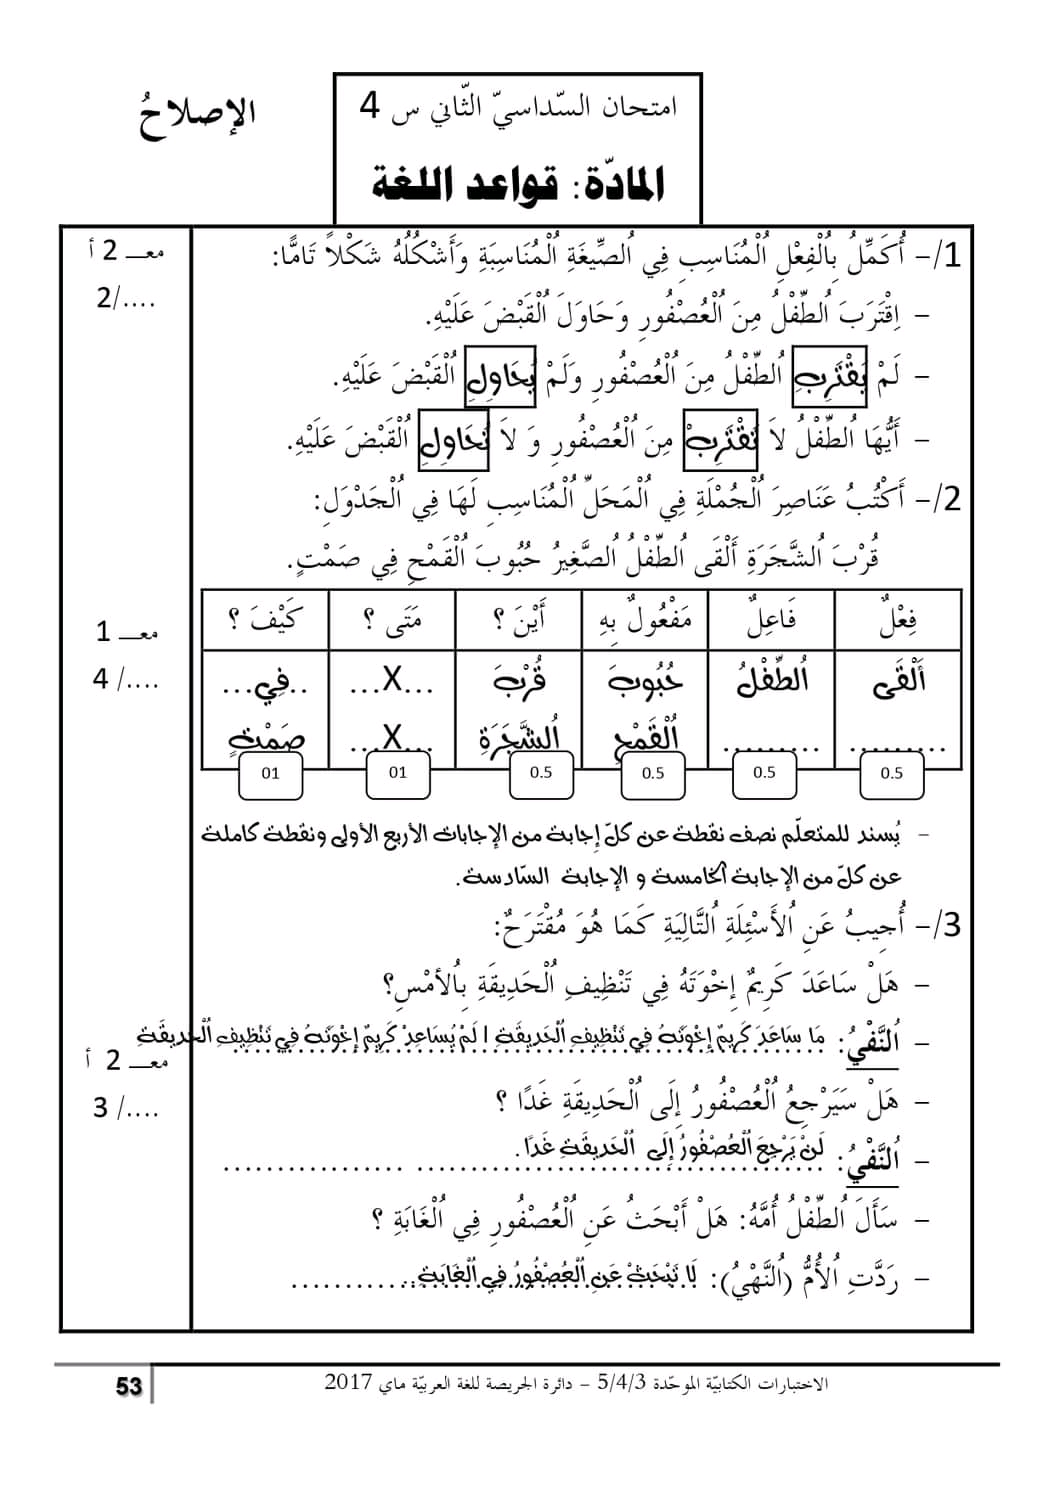 الإصلاحُ
امتحان السّداسيّ الثّاني س 4
المادّة: قواعد اللغة
معـ 2 أ
..../2
1/- أُكَمِّلُ بِاُلْفِعْلِ اُلْمُنَاسِبِ فِي اُلصِّيغَةِ اُلْمُنَاسِبَةِ وَأَشْكُلُهُ شَكْلاً تَامًّا:
- اِقْتَرَبَ اُلطِّفْلُ مِنَ اُلْعُصْفُورِ وَحَاوَلَ اُلْقَبْضَ عَلَيْهِ.
- لَمْ يَقْتَرِبِ اُلطِّفْلُ مِنَ اُلْعُصْفُورِ وَلَمْ يُحَاوِلِ اُلْقَبْضَ عَلَيْهِ.
- أَيُّهَا اُلطِّفْلُ لاَ تَقْتَرِبْ مِنَ اُلْعُصْفُورِ وَ لاَ تُحَاوِلِ اُلْقَبْضَ عَلَيْهِ.
2/- أَكْتُبُ عَنَاصِرَ اُلْجُمْلَةِ فِي اُلْمَحَلِّ اُلْمُنَاسِبِ لَهَا فِي اُلْجَدْوَلِ:
قُرْبَ اُلشَّجَرَةِ أَلْقَى اُلطِّفْلُ اُلصَّغِيرُ حُبُوبَ اُلْقَمْحِ فِي صَمْتٍ.
معـ 1
..../ 4
فِعْلٌ فَاعِلٌ مَفْعُولٌ بِهِ أَيْنَ ؟ مَتَى ؟ كَيْفَ ؟
أَلْقَى اُلطِّفْلُ حُبُوبَ قُرْبَ ...X... ..فِي...
......... ......... اُلْقَمْحِ اُلشَّجَرَةِ ...X... صَمْتٍ
0.5 0.5 0.5 0.5 01 01
- يُسند للمتعلّم نصف نقطة عن كلّ إجابة من الإجابات الأربع الأولى ونقطة كاملة
عن كلّ من الإجابة الخامسة و الإجابة السّادسة.
3/- أُجِيبُ عَنِ اُلأَسْئِلَةِ اُلتَّالِيَةِ كَمَا هُوَ مُقْتَرَحٌ:
هَلْ سَاعَدَ كَرِيمٌ إِخْوَتَهُ فِي تَنْظِيفِ اُلْحَدِيقَةِ بِاُلأَمْسِ؟
- اُلنَّفْيُ: مَا سَاعَدَ كَرِيمٌ إِخْوَتَهُ فِي تَنْظِيفِ اُلْحَدِيقَةِ / لَمْ يُسَاعِدْ كَرِيمٌ إِخْوَتَهُ فِي تَنْظِيفِ اُلْحَدِيقَةِ
معـ 2 أ
..../ 3
- هَلْ سَيَرْجِعُ اُلْعُصْفُورُ إِلَى اُلْحَدِيقَةِ غَدًا ؟
- اُلنَّفْيُ: لَنْ يَرْجِعَ اُلْعُصْفُورُ إِلَى اُلْحَدِيقَةِ غَدًا.
- سَأَلَ اُلطِّفْلُ أُمَّهُ: هَلْ أَبْحَثُ عَنِ اُلْعُصْفُورِ فِي اُلْغَابَةِ ؟
- رَدَّتِ اُلأُمُّ (اُلنَّهْيُ): لَا تَبْحَثْ عَنِ اُلْعُصْفُورِ فِي اُلْغَابَةِ.
الاختبارات الكتابيّة الموحّدة 5/4/3 – دائرة الجريصة للغة العربيّة ماي 2017
53